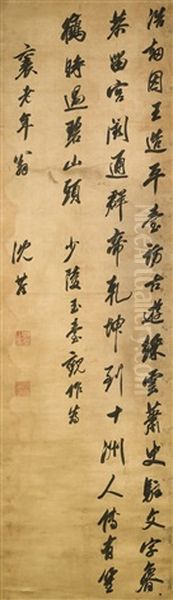 浩劫因王造平臺訪古遊綵雲蕭史駐文字魯
恭留宮闕通群帝乾坤到十洲人傳有笙
鶴時過碧山頭 少陵玉臺觀作為
襄老年翁 沈荃